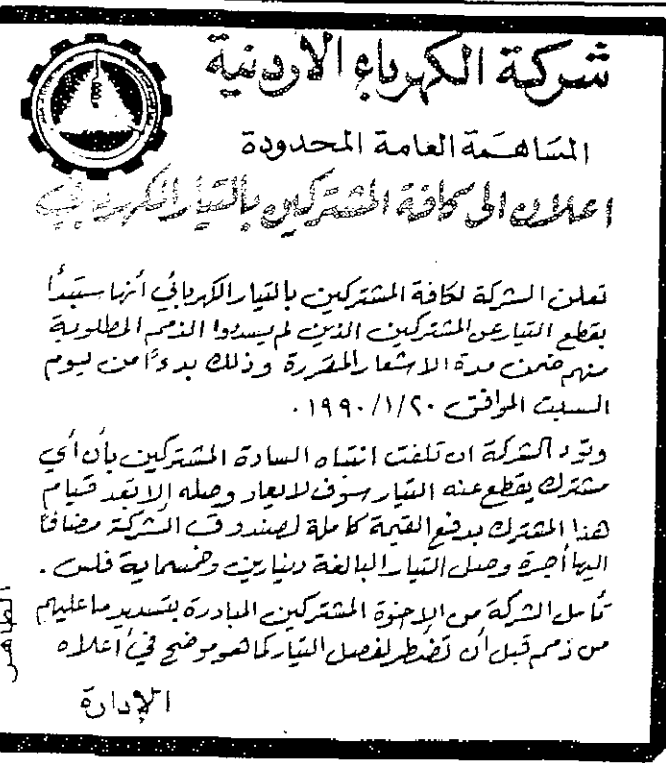 شركة الكهرباء الاردنية
المساهمة العامة المحدودة
اعلان الى كافة المشتركين بالتيار الكهربائي
تعلن الشركة لكافة المشتركين بالتيار الكهربائي أنها ستبدأ
بقطع التيار عن المشتركين الذين لم يسددوا الذمم المطلوبة
منهم ضمن مدة الاشعار المقررة وذلك بدءاً من يوم
السبت الموافق ١٩٩٠/١/٢٠ .
وتود الشركة ان تلفت انتباه السادة المشتركين بأن أي
مشترك يقطع عنه التيار سوف لا يعاد وصله إلا بعد قيام
هذا المشترك بدفع القيمة كاملة لصندوق الشركة مضافاً
اليها أجرة وصل التيار البالغة دينارين وخمسماية فلس .
تأمل الشركة من الاخوة المشتركين المبادرة بتسديد ما عليهم
من ذمم قبل أن تضطر لفصل التيار كما هو موضح في أعلاه
الإدارة
الظاهر